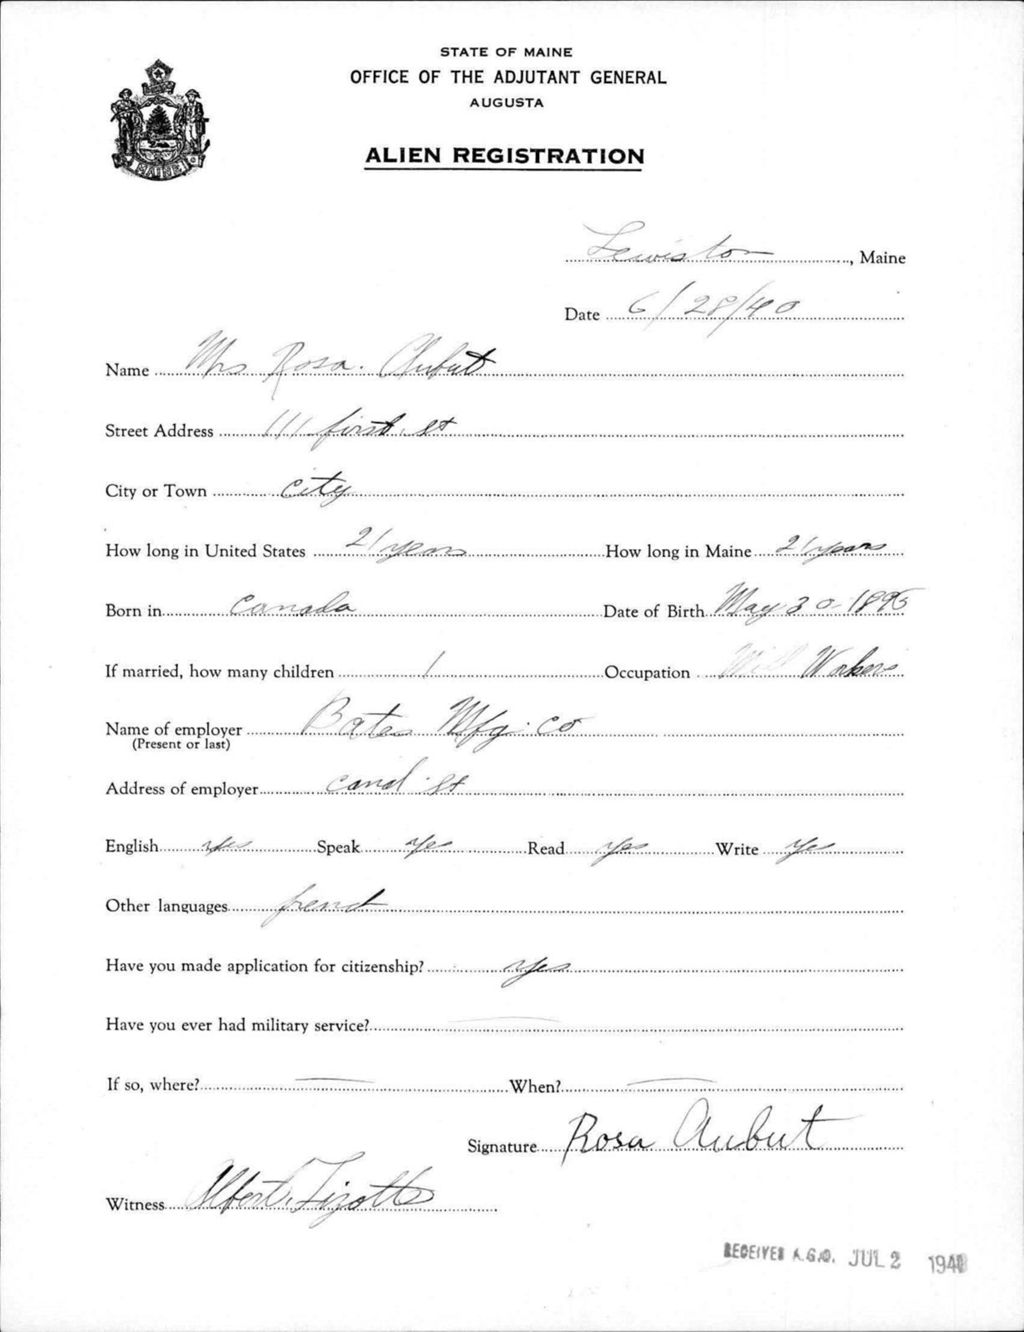 STATE OF MAINE
OFFICE OF THE ADJUTANT GENERAL
AUGUSTA
ALIEN REGISTRATION
MAINE
Lewiston, Maine
Date 6/28/40
Name Mrs Rosa. Aubut
Street Address 111 first. st
City or Town city
How long in United States 21 years How long in Maine 21 years
Born in Canada Date of Birth May 30 - 1895
If married, how many children 1 Occupation Mill Workers
Name of employer Bates Mfg. Co
(Present or last)
Address of employer canal st
English yes Speak yes Read yes Write yes
Other languages french
Have you made application for citizenship? yes
Have you ever had military service? —
If so, where? — When? —
Signature Rosa Aubut
Witness Albert Lizotte
RECEIVED A.G.O. JUL 2 1940